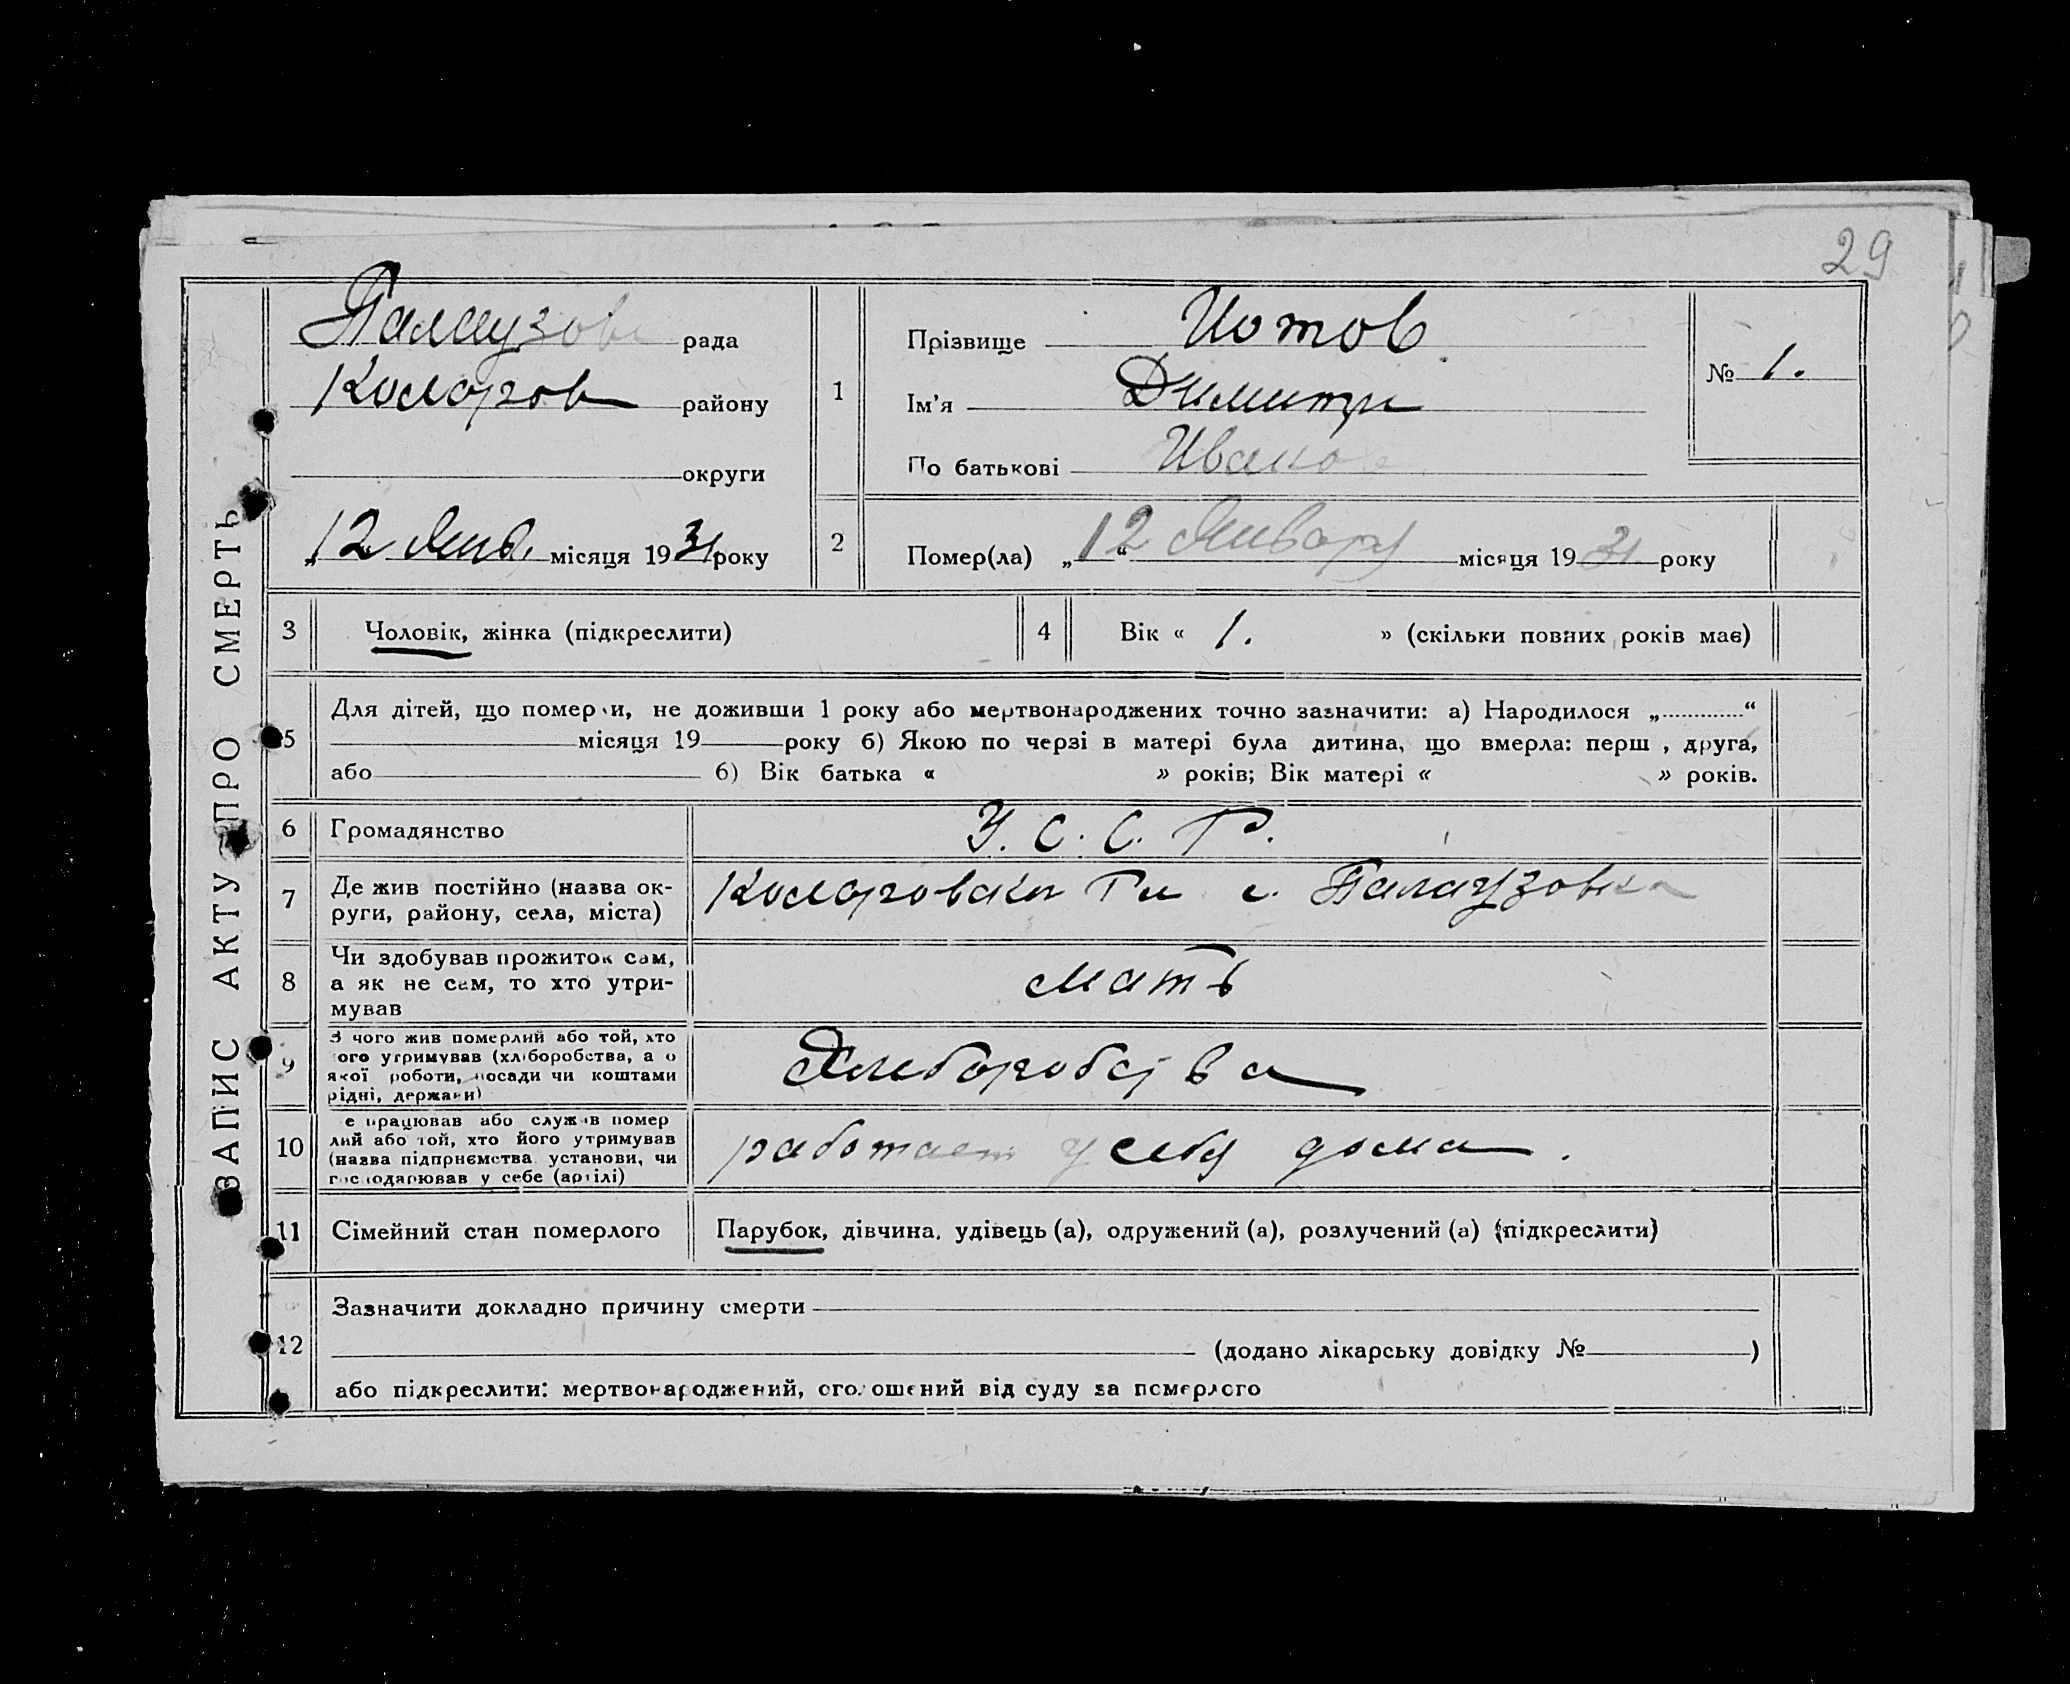 29
ЗАПИС АКТУ ПРО СМЕРТЬ
Палаузов рада
Коларов району
округи
„12 Янв. місяця 1931 року
1
Прізвище Иотов
Ім'я Димитри
По батькові Иванов
№ 1.
2
Помер(ла) „12“ Января місяця 1931 року
3 Чоловік, жінка (підкреслити)
4 Вік « 1. » (скільки повних років має)
5 Для дітей, що померли, не доживши 1 року або мертвонароджених точно зазначити: а) Народилося „............“
місяця 19 року б) Якою по черзі в матері була дитина, що вмерла: перш , друга,
або б) Вік батька « » років; Вік матері « » років.
6 Громадянство У. С. С. Р.
7 Де жив постійно (назва ок-
руги, району, села, міста) Коларовски с. Палаузовка
8 Чи здобував прожиток сам,
а як не сам, то хто утри-
мував мать
9 З чого жив померлий або той, хто
ого утримував (хліборобства, а о
якої роботи, посади чи коштами
рідні, держави) Хлеборобства
10 е працював або служив помер
лий або той, хто його утримував
(назва підприємства установи, чи
господарював у себе (артілі) работает у себя дома.
11 Сімейний стан померлого Парубок, дівчина. удівець (а), одружений (а), розлучений (а) (підкреслити)
12 Зазначити докладно причину смерти
(додано лікарську довідку № )
або підкреслити: мертвонароджений, оголошений від суду за померлого